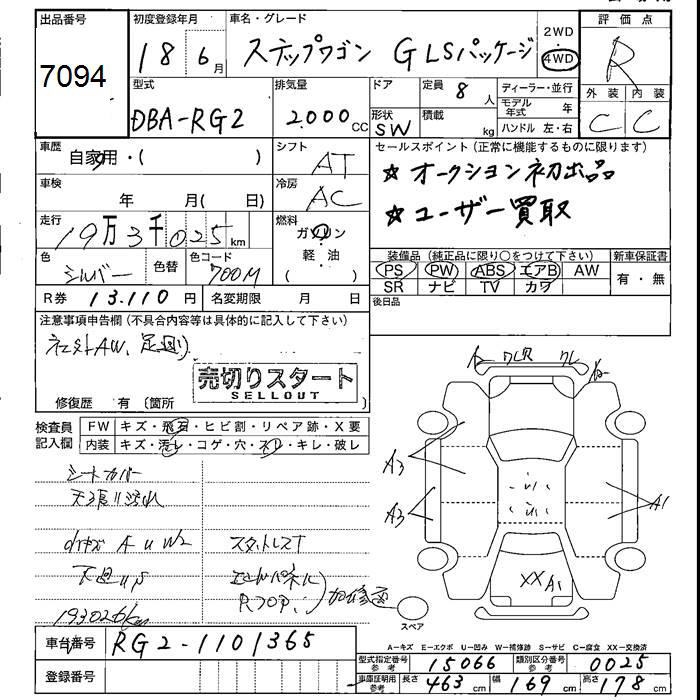 出品番号
7094
初度登録年月
18 6月
車名・グレード
ステップワゴン GLSパッケージ
2WD
4WD
評価点
R
外装 内装
C C
型式
DBA-RG2
排気量
2000cc
ドア
形状
SW
定員 8人
積載 kg
ディーラー・並行
モデル年式 年
ハンドル 左・右
車歴
自家用・( )
シフト
AT
車検
年 月( 日)
冷房
AC
セールスポイント(正常に機能するものに限ります)
☆オークション初出品
☆ユーザー買取
走行
19万3千025km
燃料
ガソリン
軽・油
( )
色
シルバー
色替
色コード
700M
装備品(純正品に限り○をつけて下さい)
PS PW ABS エアB AW
SR ナビ TV カワ
新車保証書
有・無
R券 13.110円
名変期限 月 日
後日品
注意事項申告欄(不具合内容等は具体的に記入して下さい)
社外AW、足廻り
売切りスタート
SELLOUT
修復歴 有(箇所
検査員
記入欄
FW キズ・飛石・ヒビ割・リペア跡・X要
内装 キズ・汚レ・コゲ・穴・スレ・キレ・破レ
シートカバー
天張り汚れ
A U W2
スタットレスT
下廻りS
193026km
A3
A3
A1
XX A1
スペア
車台番号 RG2-1101365
登録番号
A=キズ E=エクボ U=凹み W=補修跡 S=サビ C=腐食 XX=交換済
型式指定番号
参考
15066
類別区分番号
参考
0025
車庫証明用
参考
長さ 463cm 幅 169cm 高さ 178cm